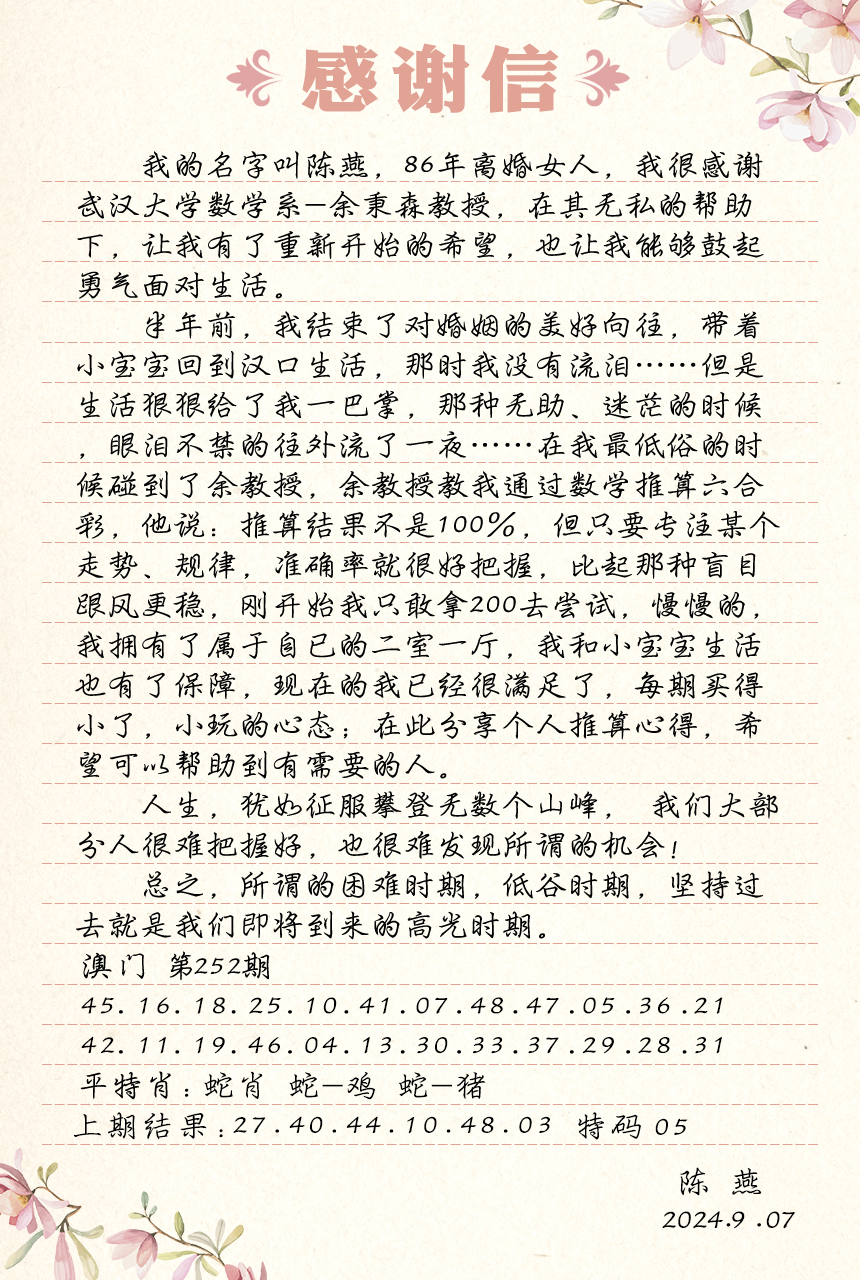 感谢信
我的名字叫陈燕，86年离婚女人，我很感谢
武汉大学数学系—余秉森教授，在其无私的帮助
下，让我有了重新开始的希望，也让我能够鼓起
勇气面对生活。
半年前，我结束了对婚姻的美好向往，带着
小宝宝回到汉口生活，那时我没有流泪……但是
生活狠狠给了我一巴掌，那种无助、迷茫的时候
，眼泪不禁的往外流了一夜……在我最低俗的时
候碰到了余教授，余教授教我通过数学推算六合
彩，他说：推算结果不是100%，但只要专注某个
走势、规律，准确率就很好把握，比起那种盲目
跟风更稳，刚开始我只敢拿200去尝试，慢慢的，
我拥有了属于自已的二室一厅，我和小宝宝生活
也有了保障，现在的我已经很满足了，每期买得
小了，小玩的心态；在此分享个人推算心得，希
望可以帮助到有需要的人。
人生，犹如征服攀登无数个山峰， 我们大部
分人很难把握好，也很难发现所谓的机会！
总之，所谓的困难时期，低谷时期，坚持过
去就是我们即将到来的高光时期。
澳门 第252期
45.16.18.25.10.41.07.48.47.05.36.21
42.11.19.46.04.13.30.33.37.29.28.31
平特肖：蛇肖 蛇—鸡 蛇—猪
上期结果：27.40.44.10.48.03 特码 05
陈 燕
2024.9.07